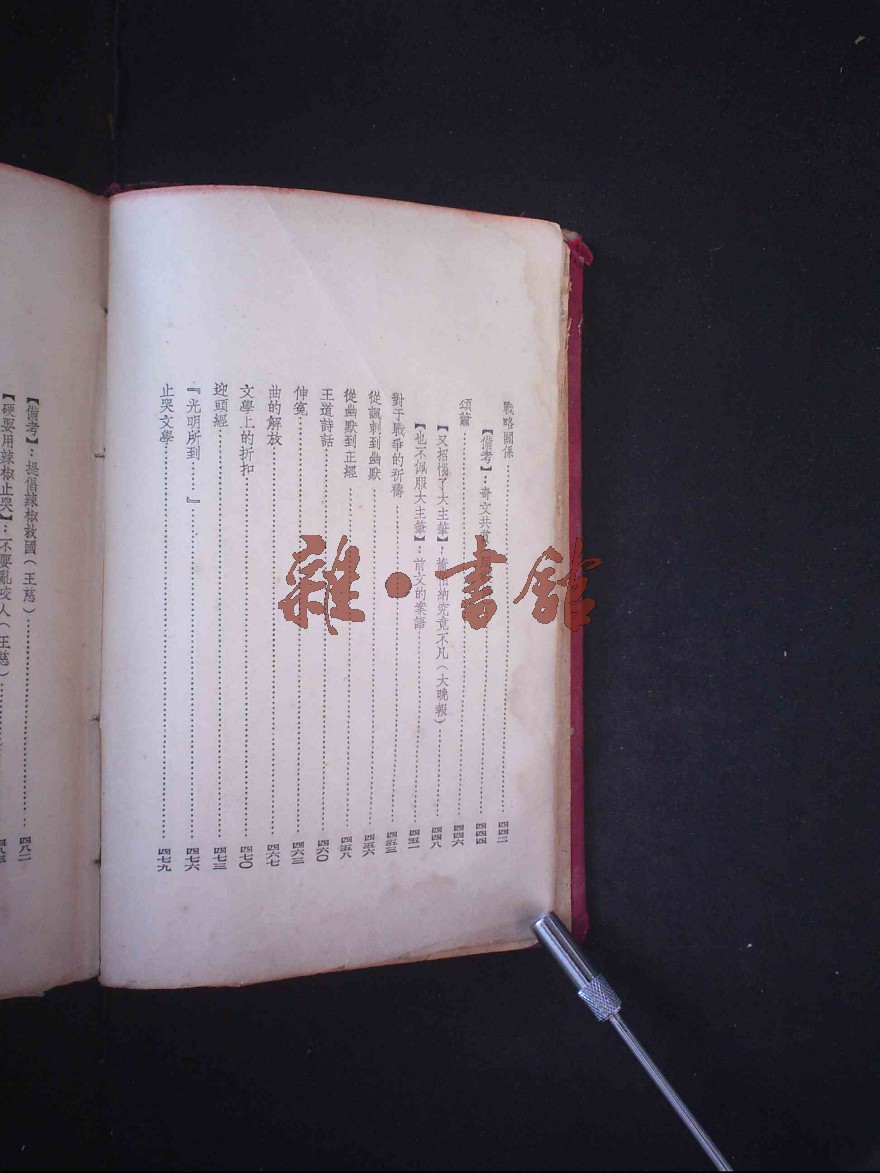 戰略關係……四四二
【備考】：奇文共……四四四
頌蕭……四四六
【又招惱了大主筆】：蕭伯納究竟不凡（大晚報）……四四八
【也不佩服大主筆】：前文的案語……四五一
對于戰爭的祈禱……四五三
從諷刺到幽默……四五六
從幽默到正經……四五八
王道詩話……四六〇
伸冤……四六三
曲的解放……四六七
文學上的折扣……四七〇
迎頭經……四七三
『光明所到……』……四七六
止哭文學……四七九
【備考】：提倡辣椒救國（王慈）……四八二
【硬要用辣椒止哭】：不要亂咬人（王慈）……四八三
雜·書館